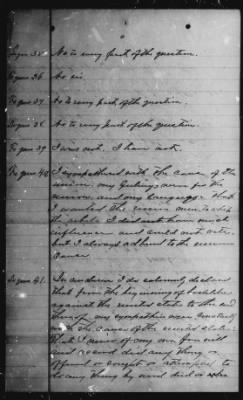 To ques 35 No to every part of the question.
To ques 36 No sir.
To ques 37 No to every part of the question.
To ques 38 No to every part of the question.
To ques 39 I was not. I have not.
To ques 40 I sympathized with the cause of the
union. my feelings were for the
union, and my language. that
I wanted the union men to whip
the rebels I did not have much
influence and could not vote.
but I always adhered to the union
cause
To ques 41. In answer I do solemnly declare
that from the beginning of hostilities
against the united states to the end
thereof my sympathies were constantly
with the cause of the united states.
that I never of my own free will
and accord did any thing or
offered or sought or attempted to
do any thing by word deed or